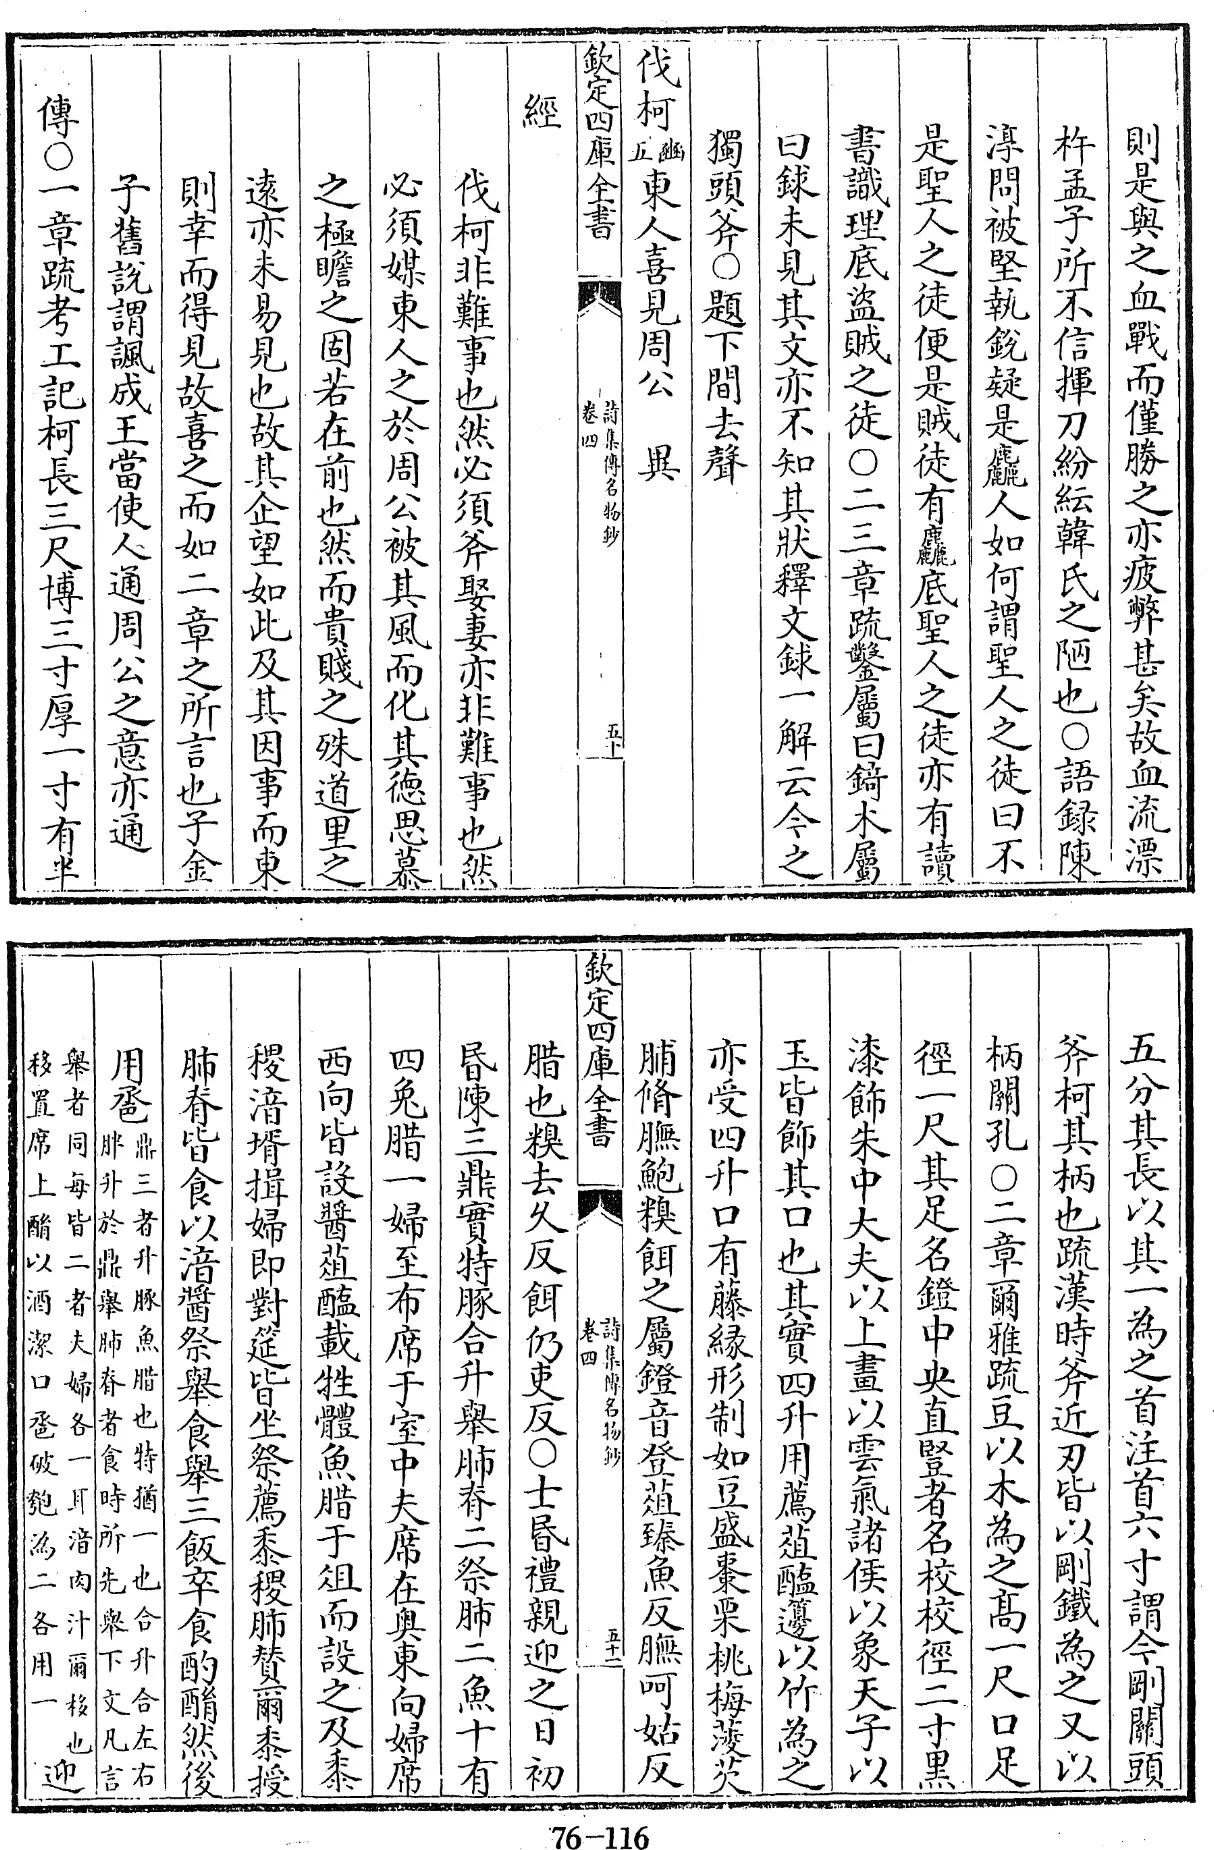 則是與之血戰而僅勝之亦疲弊甚矣故血流漂
杵孟子所不信揮刀紛紜韓氏之陋也○語録陳
淳問被堅執銳疑是麤人如何謂聖人之徒曰不
是聖人之徒便是賊徒有麤底聖人之徒亦有讀
書識理底盜賊之徒○二三章疏鑿屬曰錡木屬
曰銶未見其文亦不知其狀釋文銶一解云今之
獨頭斧○題下間去聲
伐柯豳五東人喜見周公 異
欽定四庫全書
詩集傳名物鈔
卷四
五十
經
伐柯非難事也然必須斧娶妻亦非難事也然
必須媒東人之於周公被其風而化其德思慕
之極瞻之固若在前也然而貴賤之殊道里之
遠亦未易見也故其企望如此及其因事而東
則幸而得見故喜之而如二章之所言也子金
子舊說謂諷成王當使人通周公之意亦通
傳○一章疏考工記柯長三尺博三寸厚一寸有半
五分其長以其一為之首注首六寸謂今剛關頭
斧柯其柄也疏漢時斧近刃皆以剛鐵為之又以
柄關孔○二章爾雅疏豆以木為之髙一尺口足
徑一尺其足名鐙中央直豎者名校校徑二寸黒
漆飾朱中大夫以上畫以雲氣諸侯以象天子以
玉皆飾其口也其實四升用薦菹醢籩以竹為之
亦受四升口有藤縁形制如豆盛棗栗桃梅蔆芡
脯脩膴鮑糗餌之屬鐙音登菹臻魚反膴呵姑反
欽定四庫全書
詩集傳名物鈔
卷四
五十一
腊也糗去久反餌仍吏反○士昏禮親迎之日初
昏陳三鼎實特豚合升舉肺脊二祭肺二魚十有
四兔腊一婦至布席于室中夫席在奥東向婦席
西向皆設醬菹醢載牲體魚腊于俎而設之及黍
稷湆壻揖婦即對筵皆坐祭薦黍稷肺贊爾黍授
肺脊皆食以湆醬祭舉食舉三飯卒食酌酳然後
用卺鼎三者升豚魚腊也特猶一也合升合左右
胖升於鼎舉肺脊者食時所先舉下文凡言
舉者同每皆二者夫婦各一耳湆肉汁爾移也
移置席上酳以酒潔口卺破匏為二各用一迎
76-116